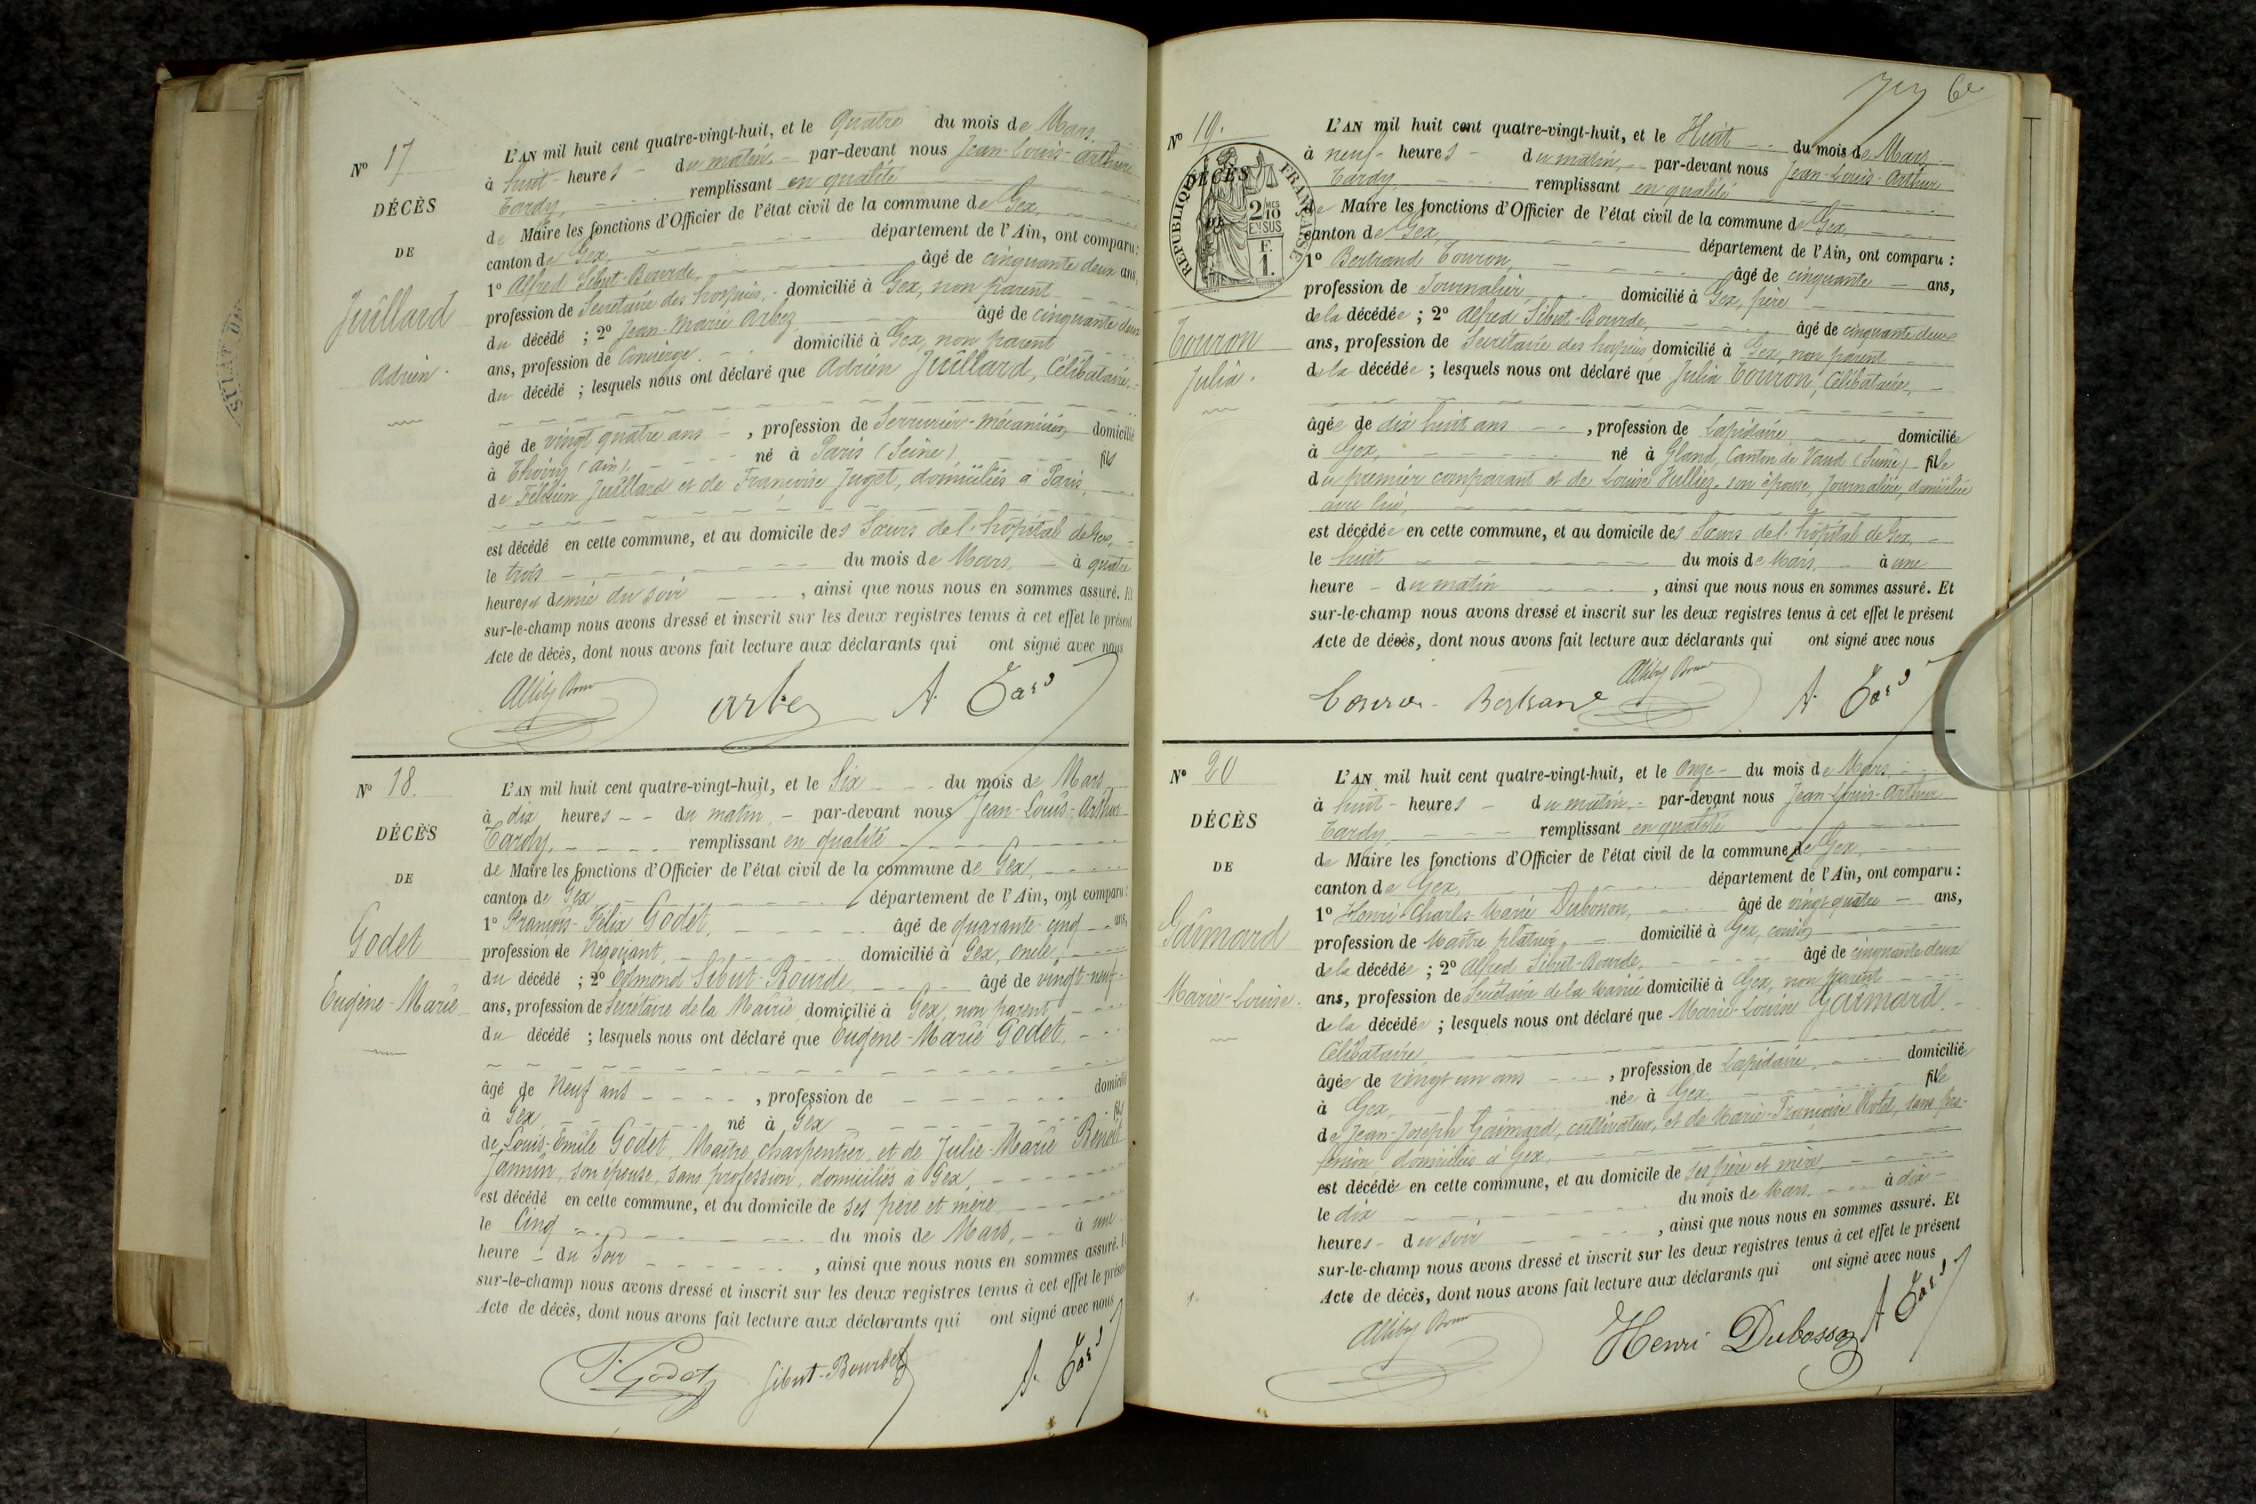 Nº 17
DÉCÈS
DE
Juillard
Adrien
L'AN mil huit cent quatre-vingt-huit, et le Quatre du mois de Mars
à huit heures du matin par-devant nous Jean-Louis-Arthur
Tardy, remplissant en qualité
de Maire les fonctions d'Officier de l'état civil de la commune de Gex,
canton de Gex, département de l'Ain, ont comparu :
1º Alfred Sibut-Bourde, âgé de cinquante deux ans,
profession de Secrétaire des hospices, domicilié à Gex, non parent
du décédé ; 2º Jean-Marie Arbez, âgé de cinquante deux
ans, profession de Concierge domicilié à Gex, non parent
du décédé ; lesquels nous ont déclaré que Adrien Juillard, Célibataire,
âgé de vingt quatre ans, profession de Serrurier-mécanicien, domicilié
à Thoiry (Ain), né à Paris (Seine) fils
de Juillard et de Françoise Juget, domiciliés à Paris,
est décédé en cette commune, et au domicile des Sœurs de l'hôpital de Gex,
le trois du mois de Mars, à quatre
heures et demie du soir, ainsi que nous nous en sommes assuré. Et
sur-le-champ nous avons dressé et inscrit sur les deux registres tenus à cet effet le présent
Acte de décès, dont nous avons fait lecture aux déclarants qui ont signé avec nous
Arbez A. Tardy
Nº 18.
DÉCÈS
DE
Godet
Eugène-Marie
L'AN mil huit cent quatre-vingt-huit, et le Six du mois de Mars
à dix heures du matin, par-devant nous Jean-Louis-Arthur
Tardy, remplissant en qualité
de Maire les fonctions d'Officier de l'état civil de la commune de Gex,
canton de Gex département de l'Ain, ont comparu :
1º François-Félix Godet, âgé de quarante-cinq ans,
profession de Négociant, domicilié à Gex, oncle,
du décédé ; 2º Edmond Sibut-Bourde, âgé de vingt-neuf
ans, profession de Secrétaire de la Mairie, domicilié à Gex, non parent,
du décédé ; lesquels nous ont déclaré que Eugène-Marie Godet,
âgé de Neuf ans, profession de domicilié
à Gex, né à Gex fils
de Louis-Emile Godet, Maître charpentier, et de Julie-Marie Benoit
Jannin, son épouse, sans profession, domiciliés à Gex,
est décédé en cette commune, et au domicile de ses père et mère
le Cinq du mois de Mars, à une
heure du Soir, ainsi que nous nous en sommes assuré. Et
sur-le-champ nous avons dressé et inscrit sur les deux registres tenus à cet effet le présent
Acte de décès, dont nous avons fait lecture aux déclarants qui ont signé avec nous
F. Godet Sibut-Bourde A. Tardy
Nº 19.
DÉCÈS
DE
RÉPUBLIQUE FRANÇAISE
2/10 MES
EN SUS
F. 1.
Touron
Julia.
L'AN mil huit cent quatre-vingt-huit, et le Huit du mois de Mars
à neuf heures du matin, par-devant nous Jean-Louis-Arthur
Tardy, remplissant en qualité
de Maire les fonctions d'Officier de l'état civil de la commune de Gex,
canton de Gex, département de l'Ain, ont comparu :
1º Bertrand Touron, âgé de cinquante ans,
profession de Journalier, domicilié à Gex, père
de la décédée ; 2º Alfred Sibut-Bourde, âgé de cinquante deux
ans, profession de Secrétaire des hospices, domicilié à Gex, non parent
de la décédée ; lesquels nous ont déclaré que Julia Touron, Célibataire,
âgée de dix huit ans, profession de Lapidaire domiciliée
à Gex, né à Gland, Canton de Vaud (Suisse) fille
du premier comparant et de Louise Hulliez, son épouse, Journalière, domiciliée
avec lui,
est décédée en cette commune, et au domicile des Sœurs de l'hôpital de Gex,
le huit du mois de Mars, à une
heure du matin, ainsi que nous nous en sommes assuré. Et
sur-le-champ nous avons dressé et inscrit sur les deux registres tenus à cet effet le présent
Acte de décès, dont nous avons fait lecture aux déclarants qui ont signé avec nous
Touron Bertrand A. Tardy
Nº 20
DÉCÈS
DE
Gaimard
Marie-Louise.
L'AN mil huit cent quatre-vingt-huit, et le Onze du mois de Mars,
à huit heures du matin, par-devant nous Jean-Louis-Arthur
Tardy, remplissant en qualité
de Maire les fonctions d'Officier de l'état civil de la commune de Gex,
canton de Gex, département de l'Ain, ont comparu :
1º Henri-Charles-Marie Dubosson, âgé de vingt quatre ans,
profession de Maître plâtrier, domicilié à Gex, cousin
de la décédée ; 2º Alfred Sibut-Bourde, âgé de cinquante deux
ans, profession de Secrétaire de la Mairie domicilié à Gex, non parent
de la décédée ; lesquels nous ont déclaré que Marie-Louise Gaimard,
Célibataire,
âgée de vingt un ans, profession de Lapidaire, domiciliée
à Gex, née à Gex, fille
de Jean-Joseph Gaimard, cultivateur, et de Marie-Françoise sans pro-
fession, domiciliés à Gex,
est décédée en cette commune, et au domicile de ses père et mère,
le dix du mois de Mars, à dix
heures du soir, ainsi que nous nous en sommes assuré. Et
sur-le-champ nous avons dressé et inscrit sur les deux registres tenus à cet effet le présent
Acte de décès, dont nous avons fait lecture aux déclarants qui ont signé avec nous
Henri Dubosson A. Tardy